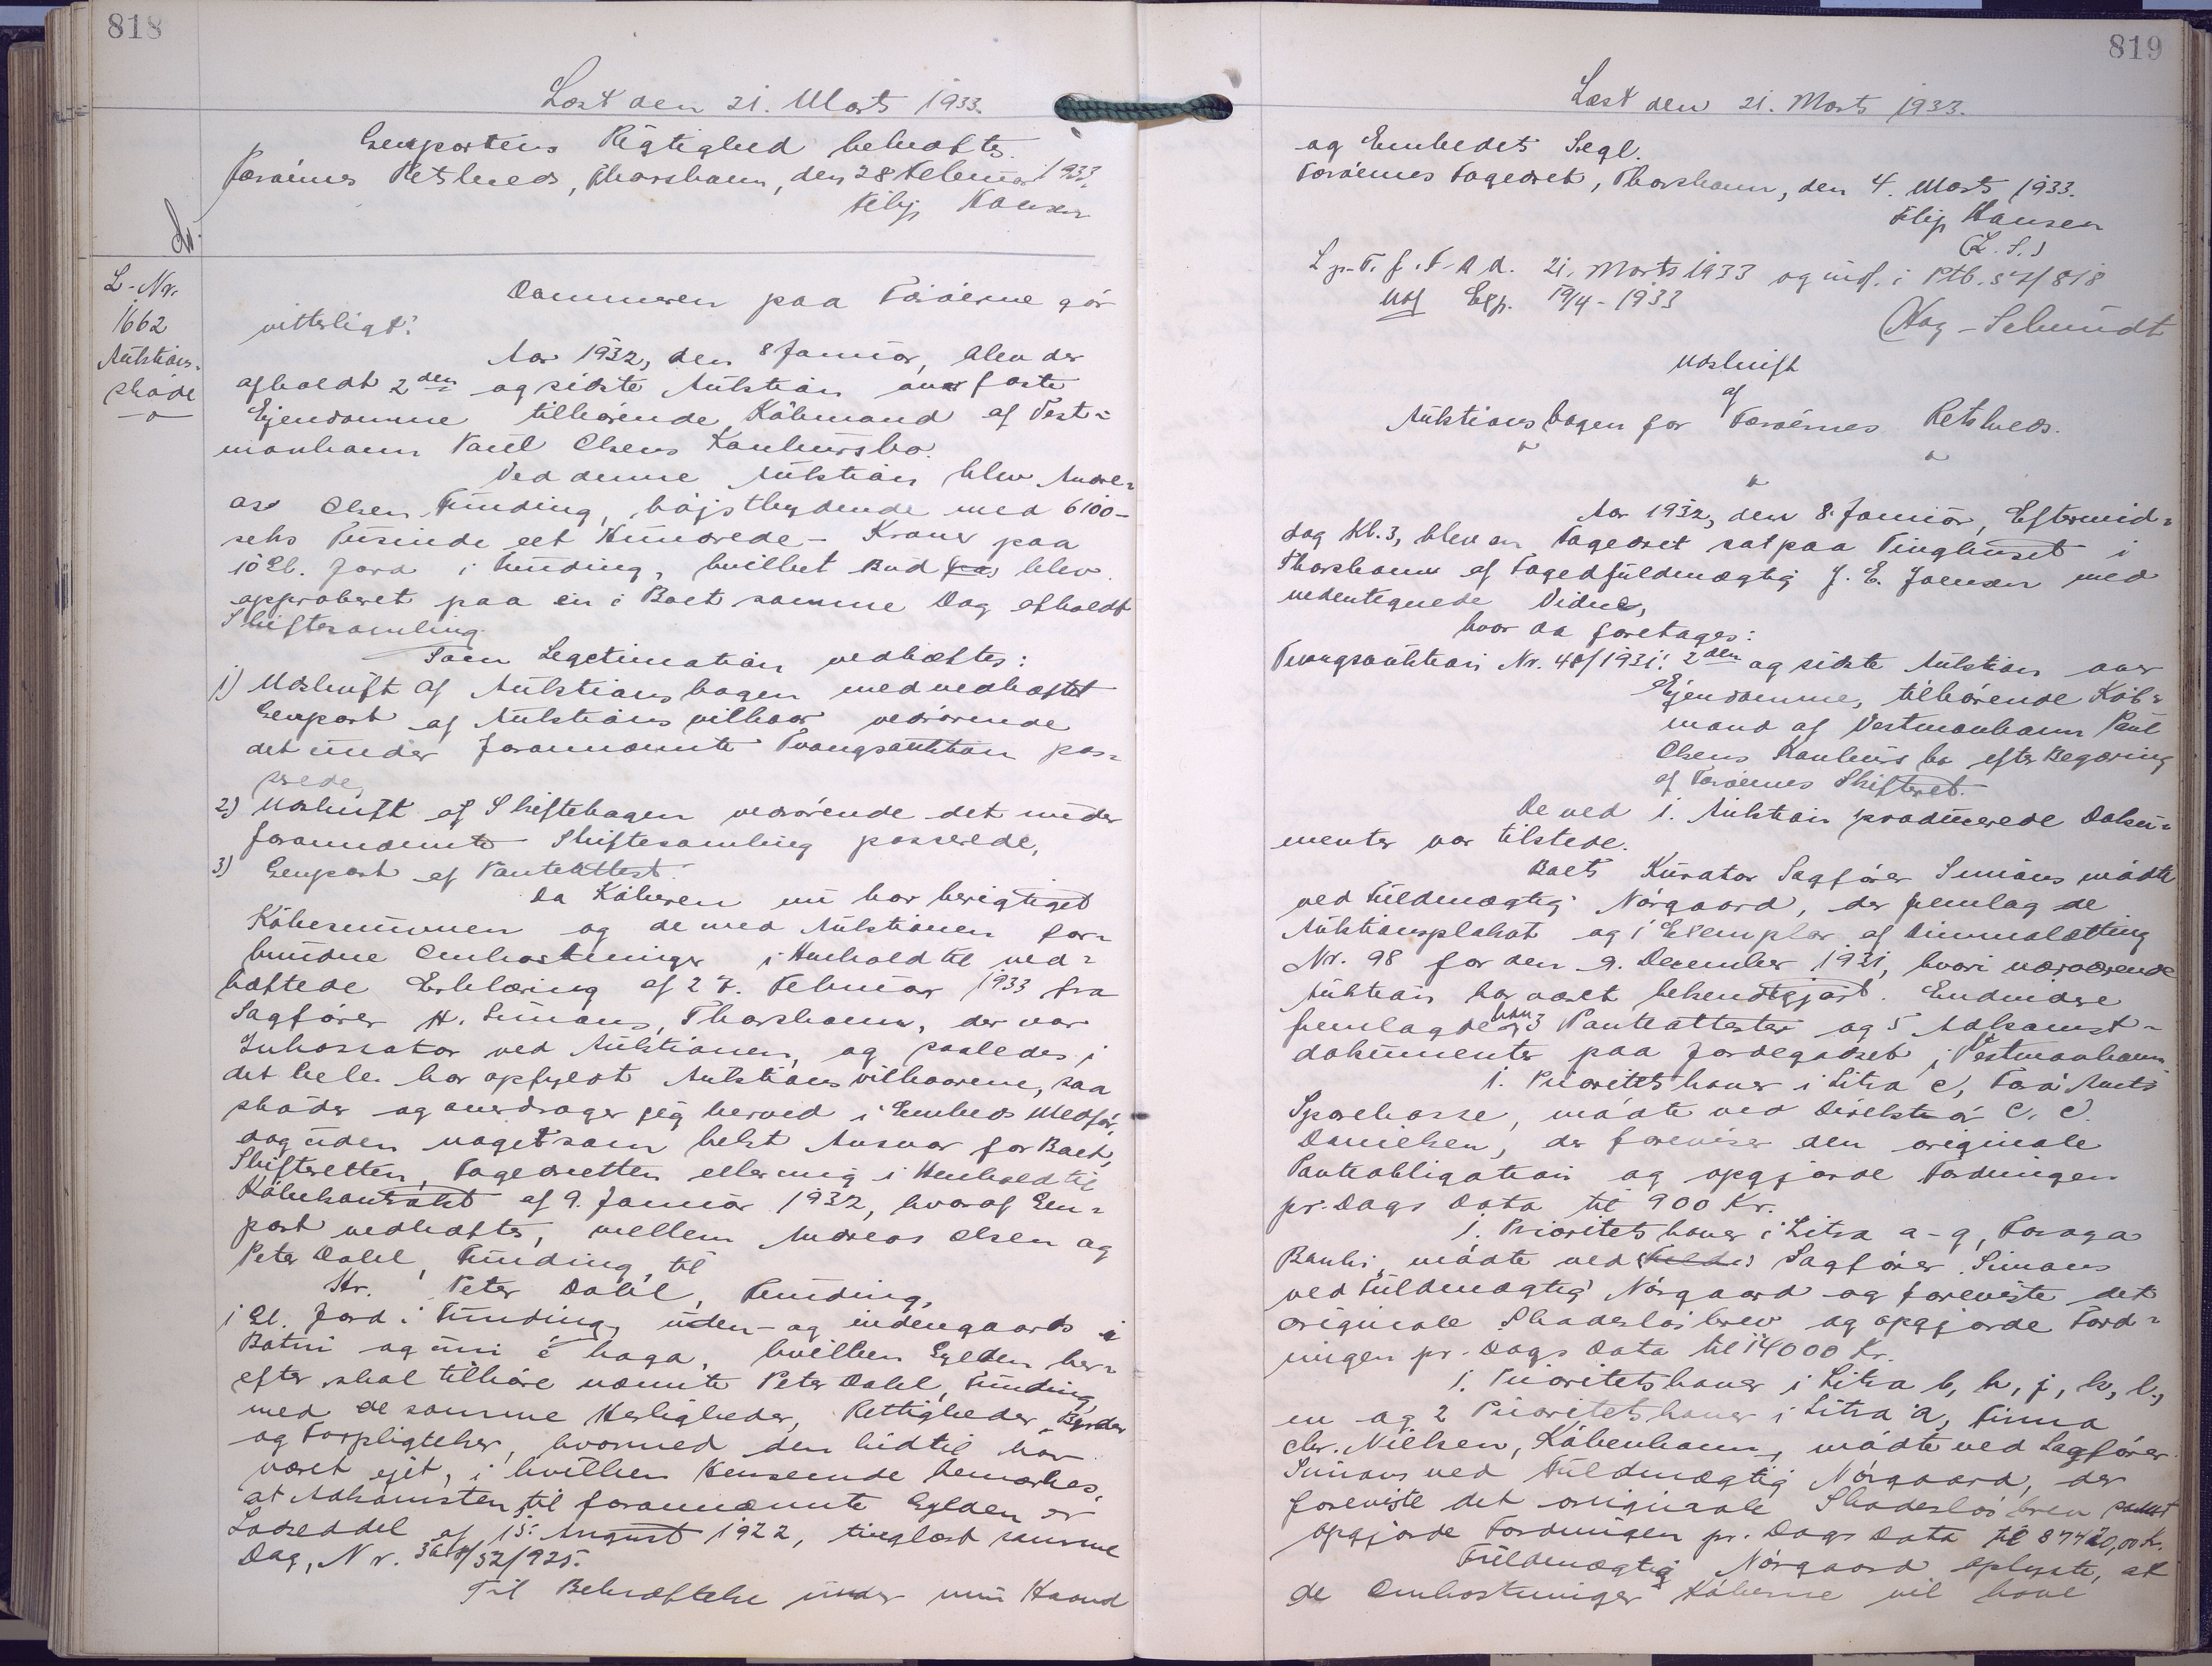 818
Læst den 21. Marts 1933.
Genpartens Rigtighed bekræftes.
Færøernes Retskreds, Thorshavn, den 28 Februar 1933.
Filip Hansen
L-Nr.
1662
Auktions-
skøde
Dommeren paa Færøerne gør
vitterligt:
Aar 1932, den 8 Januar, blev der
afholdt 2den og sidste Auktion over faste
Ejendomme tilhørende Købmand af Vest-
manhavn Paul Olsens Konkursbo.
Ved denne Auktion blev Andre-
as Olsen Funding, højstbydende med 6100-
seks Tusinde eet Hundrede - Kroner paa
10 Gl. Jord i Funding, hvilket Bud blev
approberet paa en i Boet samme Dag afholdt
Skiftesamling.
Som Legitimation vedhæftes:
1) Udskrift af Auktionsbogen med vedhæftet
Genpart af Auktionsvilkaar vedrørende
det under forannævnte Tvangsauktion pas-
serede,
2) Udskrift af Skiftebogen vedrørende det under
forannævnte Skiftesamling passerede,
3) Genpart af Panteattest.
Da Køberen nu har berigtiget
Købesummen og de med Auktionen for-
bundne Omkostninger i Henhold til ved-
hæftede Erklæring af 27. Februar 1933 fra
Sagfører H. Simons, Thorshavn, der var
Inkassator ved Auktionen, og saaledes i
det hele har opfyldt Auktionsvilkaarene, saa
skøder og overdrager jeg herved i Embeds Medfør,
dog uden noget som helst Ansvar for Boet,
Skifteretten, Fogedretten eller mig i Henhold til
Købekontrakt af 9. Januar 1932, hvoraf Gen-
part vedhæftes, mellem Andreas Olsen og
Peter Dahl, Funding, til
Hr. Peter Dahl, Funding,
1 Gl. Jord i Funding, uden- og indengaards i
Botni og uni á haga, hvilken Gylden her-
efter skal tilhøre nævnte Peter Dahl, Funding,
med de samme Herligheder, Rettigheder, Byrder
og Forpligtelser, hvormed den hidtil har
været ejet, i hvilken Henseende bemærkes,
at Adkomsten til forannævnte Gylden er
Lodseddel af 15. August 1922, tinglæst samme
Dag, Nr. /32/925.
Til Bekræftelse under min Haand
819
Læst den 21. Marts 1933.
og Embedets Segl.
Færøernes Fogedret, Thorshavn, den 4. Marts 1933.
Filip Hansen
(L.S.)
L p. T. f. F. A d. 21. Marts 1933 og indf. i Ptb. /818
Exp. 19/4-1933
Udskrift
af
Auktionsbogen for Færøernes Retskreds.
Aar 1932, den 8. Januar, Eftermid-
dag Kl. 3, blev en Fogedret sat paa Tinghuset i
Thorshavn af Fogedfuldmægtig J. E. Joensen med
undertegnede Vidne,
hvor da foretages:
Tvangsauktion Nr. 48/1931: 2den og sidste Auktion over
Ejendomme, tilhørende Køb-
mand af Vestmanhavn Paul
Olsens Konkursbo efter Begæring
af Færøernes Skifteret.
De ved 1. Auktion producerede Doku-
menter var tilstede.
Boets Kurator Sagfører Simons mødte
ved Fuldmægtig Nørgaard, der fremlagde
Auktionsplakat og 1 Exemplar af Dimmalætting
Nr. 98 for den 9. December 1931, hvori nærværende
Auktion har været bekendtgjort. Endvidere
fremlagde han 3 Panteattester og 5 Adkomst-
dokumenter paa Jordegodset i Vestmanhavn
1. Prioritetshaver i Litra c, Færø Amts
Sparekasse, mødte ved Direktør C. C.
Danielsen, der foreviser den originale
Panteobligation og opgjorde Fordringen
pr. Dags Dato til 900 Kr.
1. Prioritetshaver i Litra a-g, Føroya
Banki, mødte ved Sagfører Simons
ved Fuldmægtig Nørgaard og foreviste det
originale Skadesløsbrev og opgjorde Ford-
ringen pr. Dags Dato til 14000 Kr.
1. Prioritetshaver i Litra b, h, j, k, l,
m og 2 Prioritetshaver i Litra a, Firma
Chr. Nielsen, København, mødte ved Sagfører
Simons ved Fuldmægtig Nørgaard, der
foreviste det originale Skadesløsbrev samt
opgjorde Fordringen pr. Dags Dato til 87420,00 Kr.
Fuldmægtig Nørgaard oplyste, at
de Omkostninger Køberne vil have